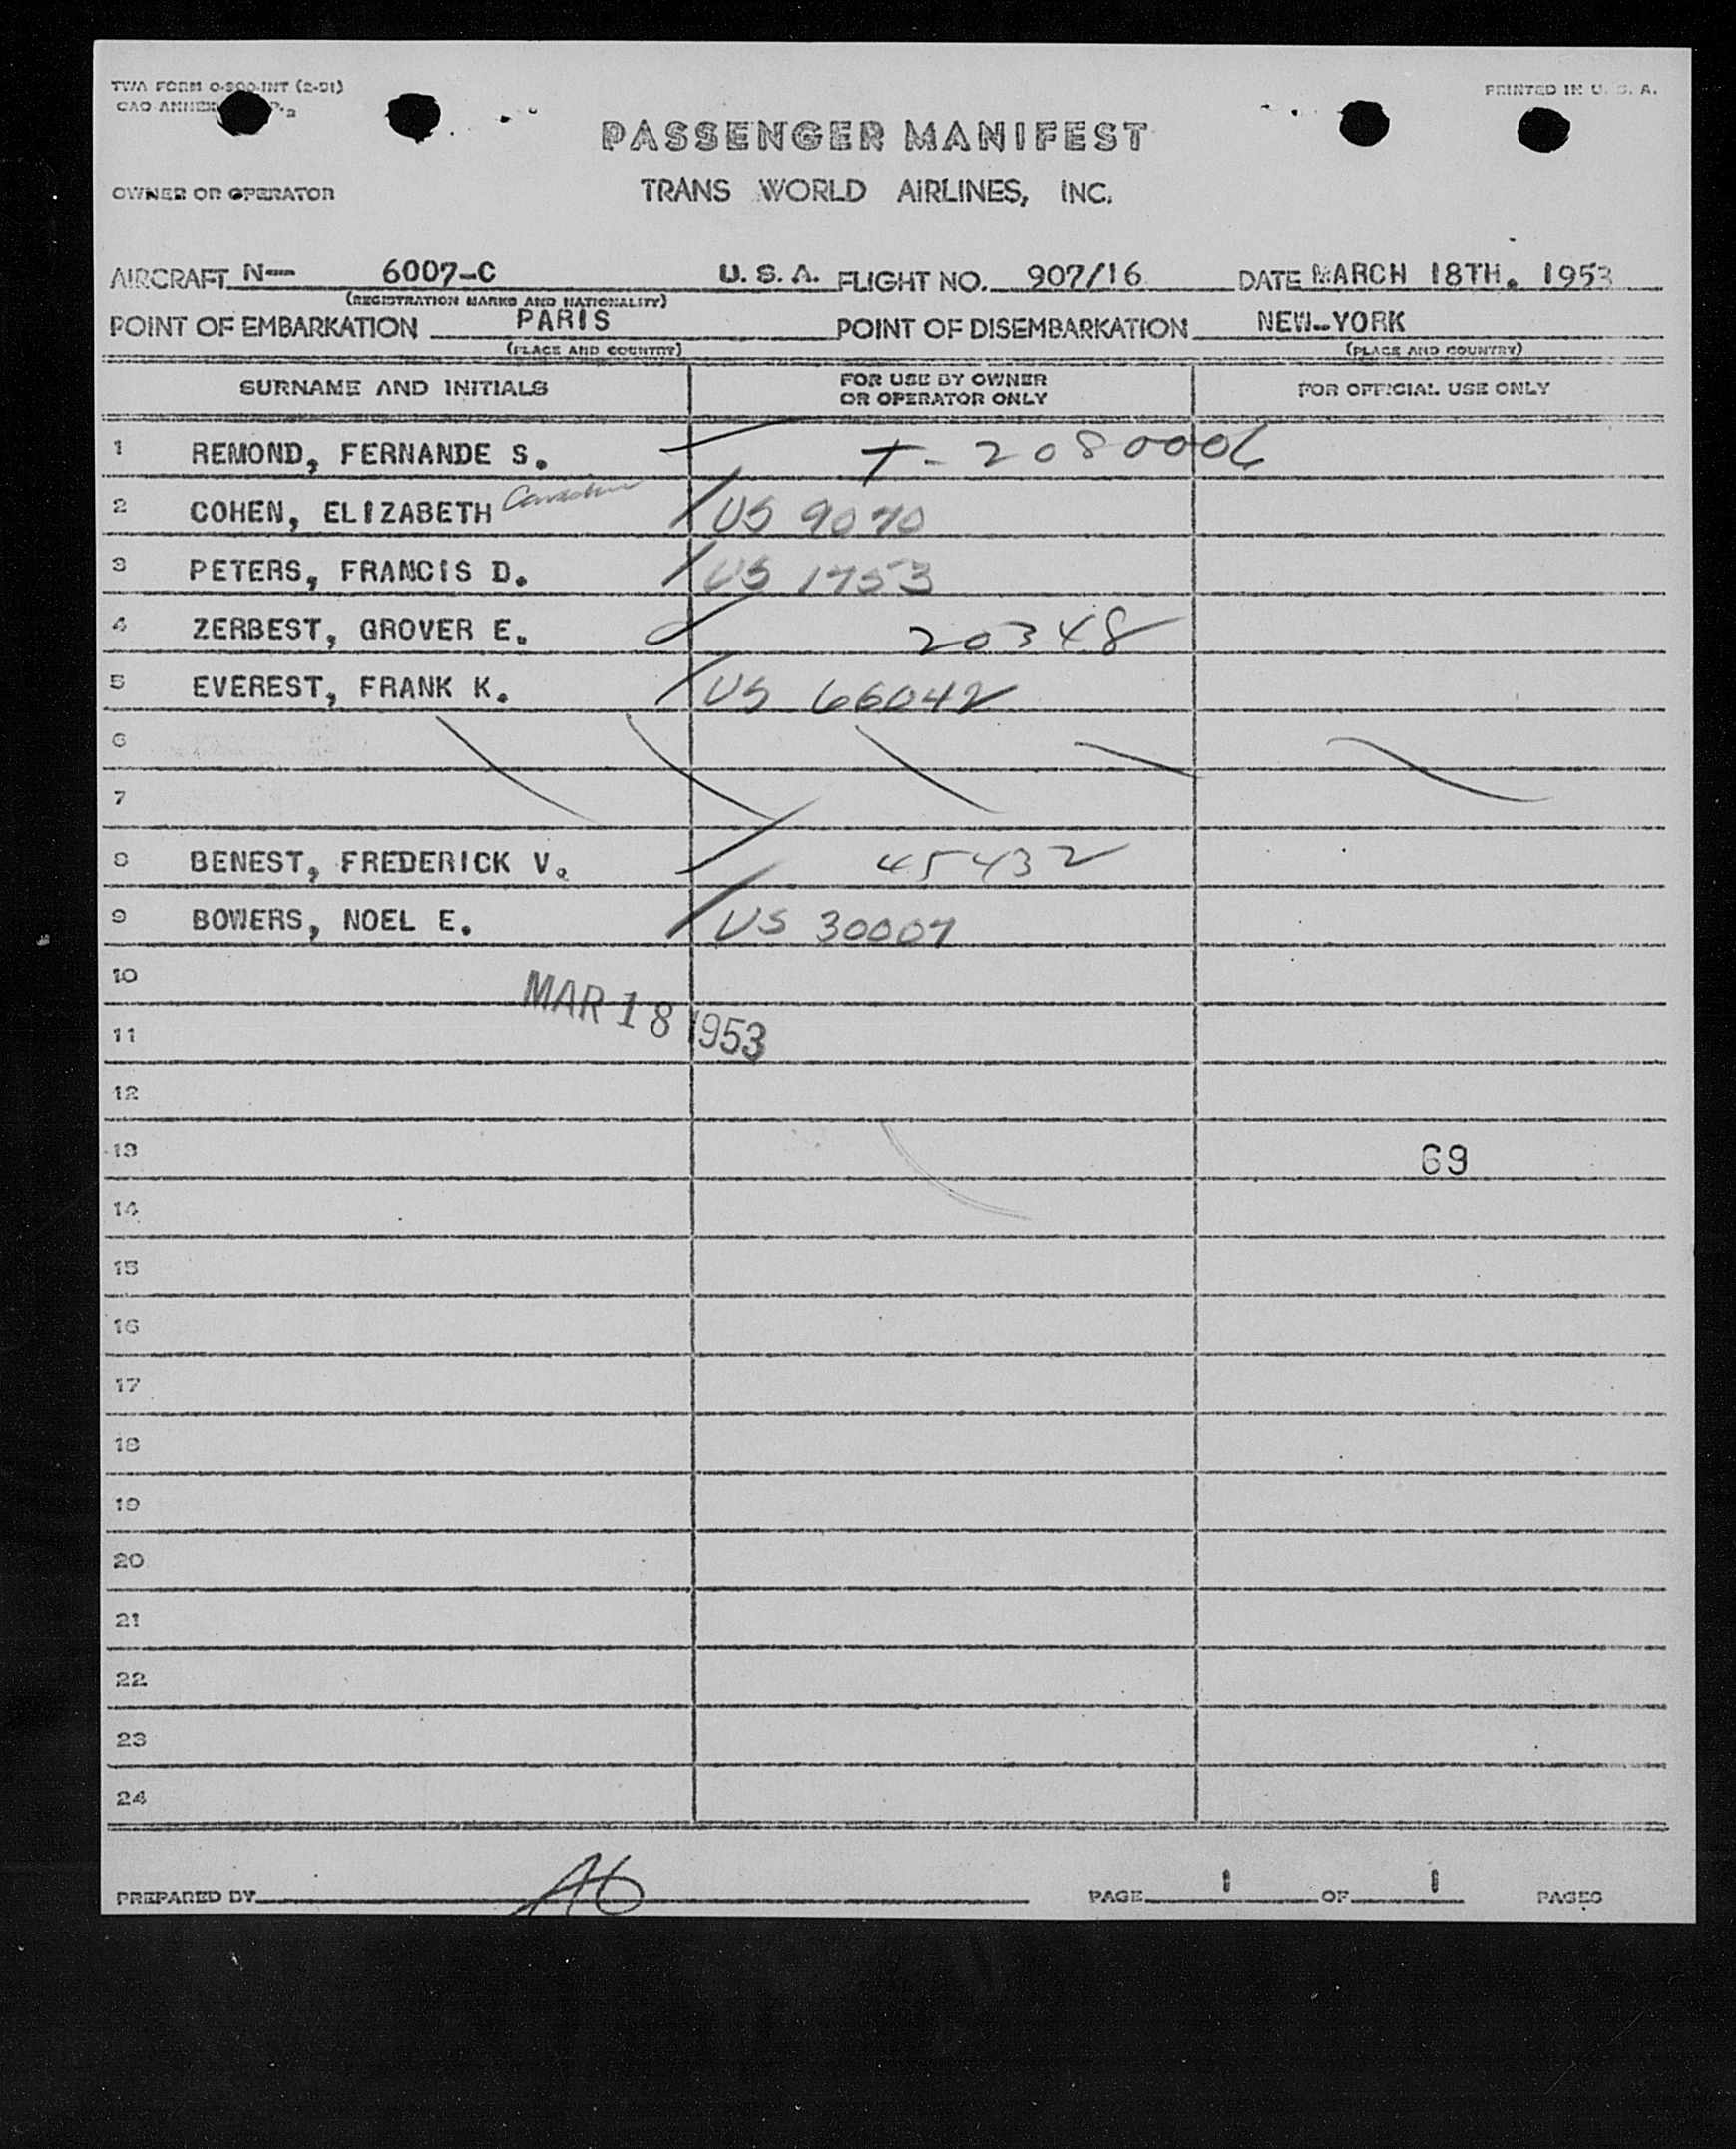 TWA FORM O-800-INT (2-51)
PRINTED IN U. S. A.
CAO ANNEX
PASSENGER MANIFEST
OWNER OR OPERATOR
TRANS WORLD AIRLINES, INC.
AIRCRAFT N— 6007-C U. S. A. FLIGHT NO. 907/16 DATE MARCH 18TH. 1953
(REGISTRATION MARKS AND NATIONALITY)
POINT OF EMBARKATION PARIS POINT OF DISEMBARKATION NEW-YORK
(PLACE AND COUNTRY) (PLACE AND COUNTRY)
SURNAME AND INITIALS FOR USE BY OWNER OR OPERATOR ONLY FOR OFFICIAL USE ONLY
1 REMOND, FERNANDE S. T- 2080006
2 COHEN, ELIZABETH US 9070
3 PETERS, FRANCIS D. US 1753
4 ZERBEST, GROVER E. 20348
5 EVEREST, FRANK K. US 66042
6
7
8 BENEST, FREDERICK V. 45432
9 BOWERS, NOEL E. US 30007
10
MAR 18 1953
11
12
13 69
14
15
16
17
18
19
20
21
22
23
24
PREPARED BY PAGE 1 OF 1 PAGES